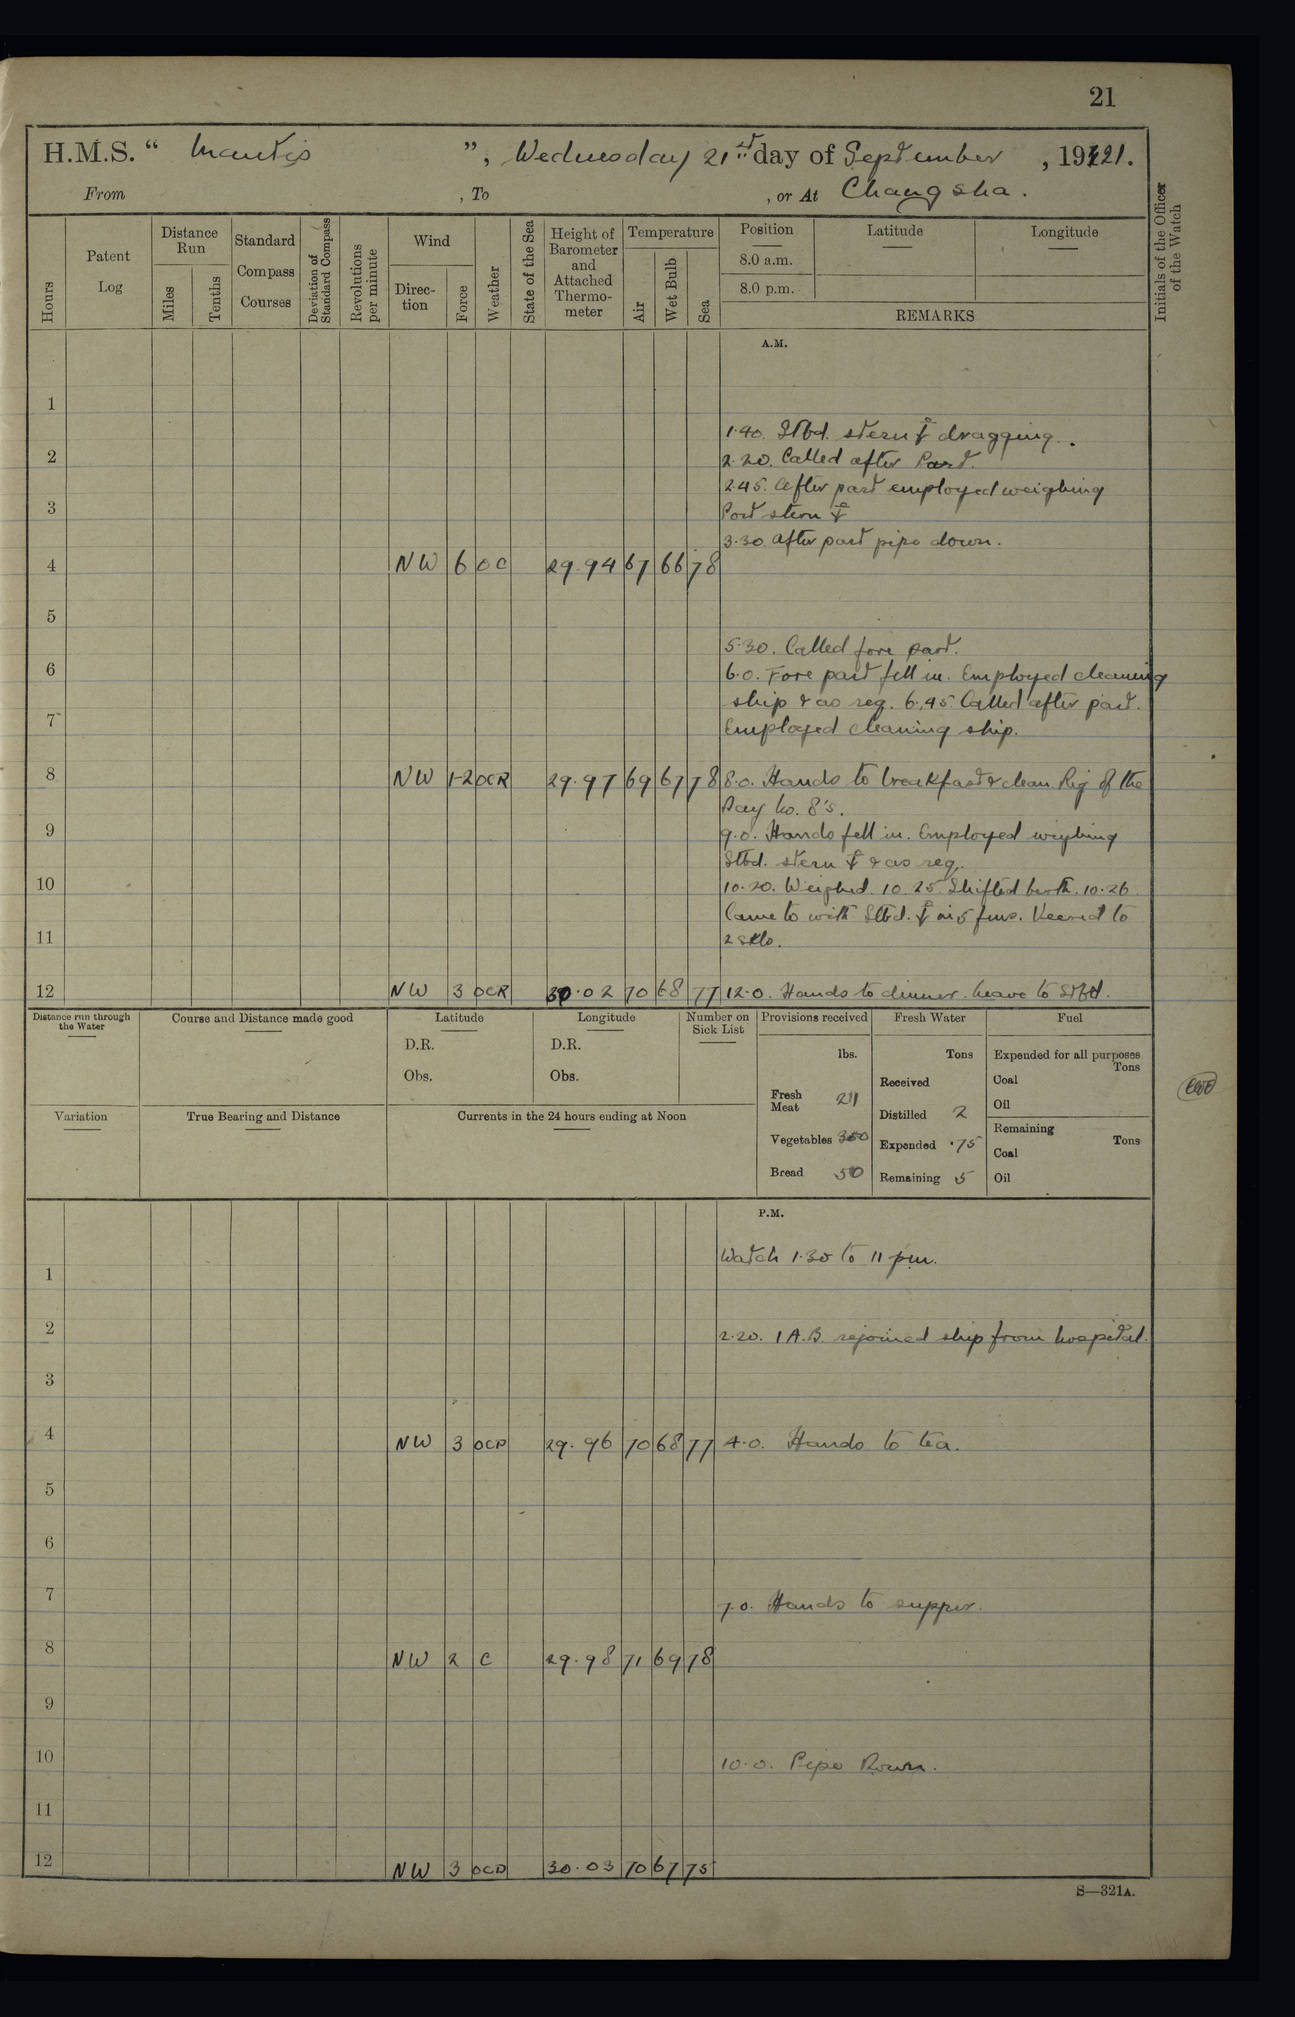 21
H.M.S. " Mantis ", Wednesday 21st day of September, 1921.
From , To , or At Changsha.
Hours
Patent Log
Distance Run
Miles
Tenths
Standard Compass Courses
Deviation of Standard Compass
Revolutions per minute
Wind
Direction
Force
Weather
State of the Sea
Height of Barometer and Attached Thermometer
Temperature
Air
Wet Bulb
Sea
Position
8.0 a.m.
8.0 p.m.
Latitude
Longitude
REMARKS
Initials of the Officer of the Watch
A.M.
1
1.40. Stbd. stern ⚓ dragging.
2
2.20. Called after Part.
2.45. After part employed weighing
3
Port stern ⚓
3.30. After part pipe down.
4 NW 6 OC 29.94 67 66 78
5
5.30. Called fore part.
6
6.0. Fore part fell in. Employed cleaning
ship & as req. 6.45. Called after part.
7
Employed cleaning ship.
8 NW 1-2 OCR 29.97 69 67 78 8.0. Hands to breakfast & clean. Rig of the
Day No. 8's.
9
9.0. Hands fell in. Employed weighing
Stbd. stern ⚓ & as req.
10
10.20. Weighed. 10.25. Shifted berth. 10.26
Came to with Stbd. ⚓ in 5 fms. Veered to
11
2 sks.
12 NW 3 OCR 30.02 70 68 77 12.0. Hands to dinner. Leave to Stbd.
Distance run through the Water
Course and Distance made good
Latitude
D.R.
Obs.
Longitude
D.R.
Obs.
Number on Sick List
Provisions received
lbs.
Fresh Meat 21
Vegetables 350
Bread 50
Fresh Water
Tons
Received
Distilled 2
Expended .75
Remaining 5
Fuel
Expended for all purposes
Tons
Coal
Oil
Remaining
Tons
Coal
Oil
Variation
True Bearing and Distance
Currents in the 24 hours ending at Noon
P.M.
Watch 1.30 to 11 pm.
1
2
2.20. 1 A.B. rejoined ship from hospital.
3
4 NW 3 OCD 29.96 70 68 77 4.0. Hands to tea.
5
6
7
7.0. Hands to supper.
8 NW 2 C 29.98 71 69 78
9
10
10.0. Pipe Down.
11
12 NW 3 OCD 30.03 70 67 75
S—321A.